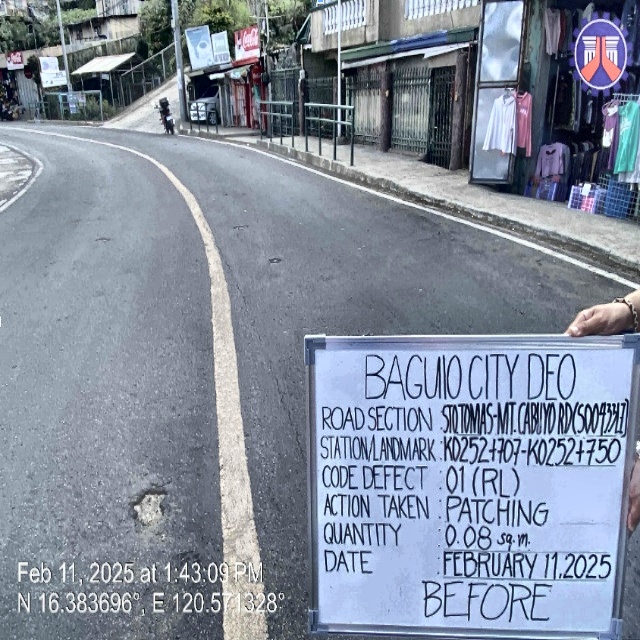 Coca-Cola
BAGUIO CITY DEO
ROAD SECTION STO TOMAS-MT. CABUYO RD(S00433LZ)
STATION/LANDMARK K0252+707-K0252+750
CODE DEFECT : 01 (RL)
ACTION TAKEN : PATCHING
QUANTITY : 0.08 sq.m.
DATE : FEBRUARY 11.2025
BEFORE
Feb 11, 2025 at 1:43:09 PM
N 16.383696°, E 120.571328°